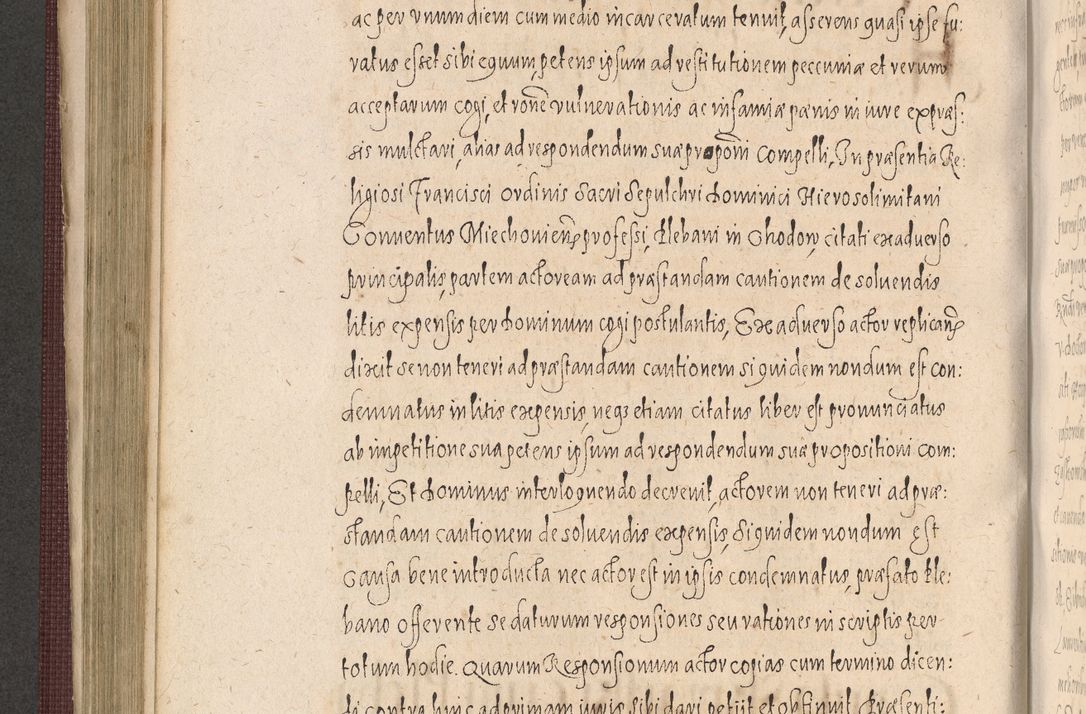 ac per unum diem cum medio incarceratum tenuit, asserens quasi ipse fu:
ratus esset sibi equum, petens ipsum ad restitutionem peccuniæ et rerum
acceptarum cogi, et rõne vulnerationis ac infamiæ pænis in iure expræs:
sis mulctari, alias ad respondendum suæ propõni compelli, In præsentia Re:
ligiosi Francisci ordinis Sacri Sepulchri Dominici Hierosolimitani
Conventus Miechovien professi, Plebani in Chodow, citati ex adverso
principalis, partem actoream ad præstandam cautionem de solvendis
litis expensis per Dominum cogi postulantis, Ex adverso actor replicans
dixit se non teneri ad præstandam cautionem siquidem nondum est con:
demnatus in litis expensis, neqз etiam citatus liber est pronunciatus
ab impetitione sua petens ipsum ad respondendum suæ propositioni com:
pelli, Et Dominus interloquendo decrevit, actorem non teneri ad præ:
standam cautionem de solvendis expensis, Siquidem nondum est
Causa bene introducta nec actor est in ipsis condemnatus, præfato Ple:
bano offerente se daturum responsiones seu rationes in scriptis per
totum hodie. Quarum Responsionum actor copias cum termino dicen:
di contra hinc ad primam iuris sibi dari petiit et obtinuit Præsenti: